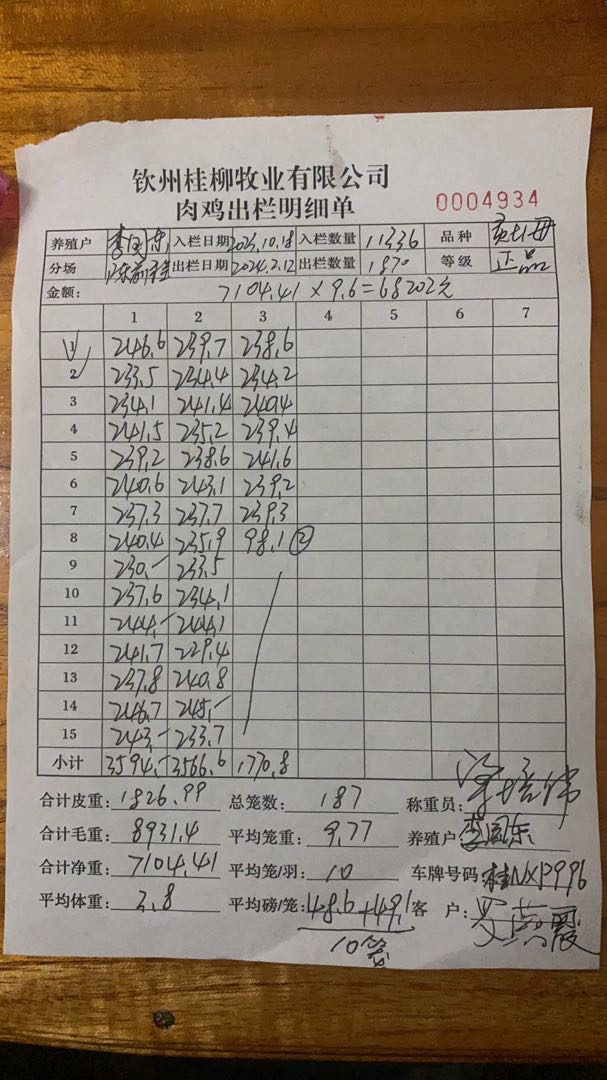 钦州桂柳牧业有限公司
肉鸡出栏明细单
0004934
养殖户 李国东 入栏日期 2023.10.18 入栏数量 11336 品种
分场 出栏日期 2024.2.12 出栏数量 1870 等级 正品
金额: 7104.41 × 9.6 = 68202元
1 2 3 4 5 6 7
1 246.6 239.7 238.6
2 233.5 234.4 234.2
3 234.1 241.4 240.4
4 241.5 235.2 239.4
5 239.2 238.6 241.6
6 240.6 243.1 239.2
7 237.3 237.7 239.3
8 240.4 235.9 98.1 ②
9 230.- 233.5
10 237.6 234.1
11 244.- 244.1
12 241.7 229.4
13 237.8 240.8
14 246.7 245.-
15 243.- 233.7
小计 3594.- 3566.6 1770.8
合计皮重: 1826.99 总笼数: 187 称重员:
合计毛重: 8931.4 平均笼重: 9.77 养殖户: 李国东
合计净重: 7104.41 平均笼/羽: 10 车牌号码: 桂NXP996
平均体重: 3.8 平均磅/笼: 48.6+49.1 客 户:
10笼